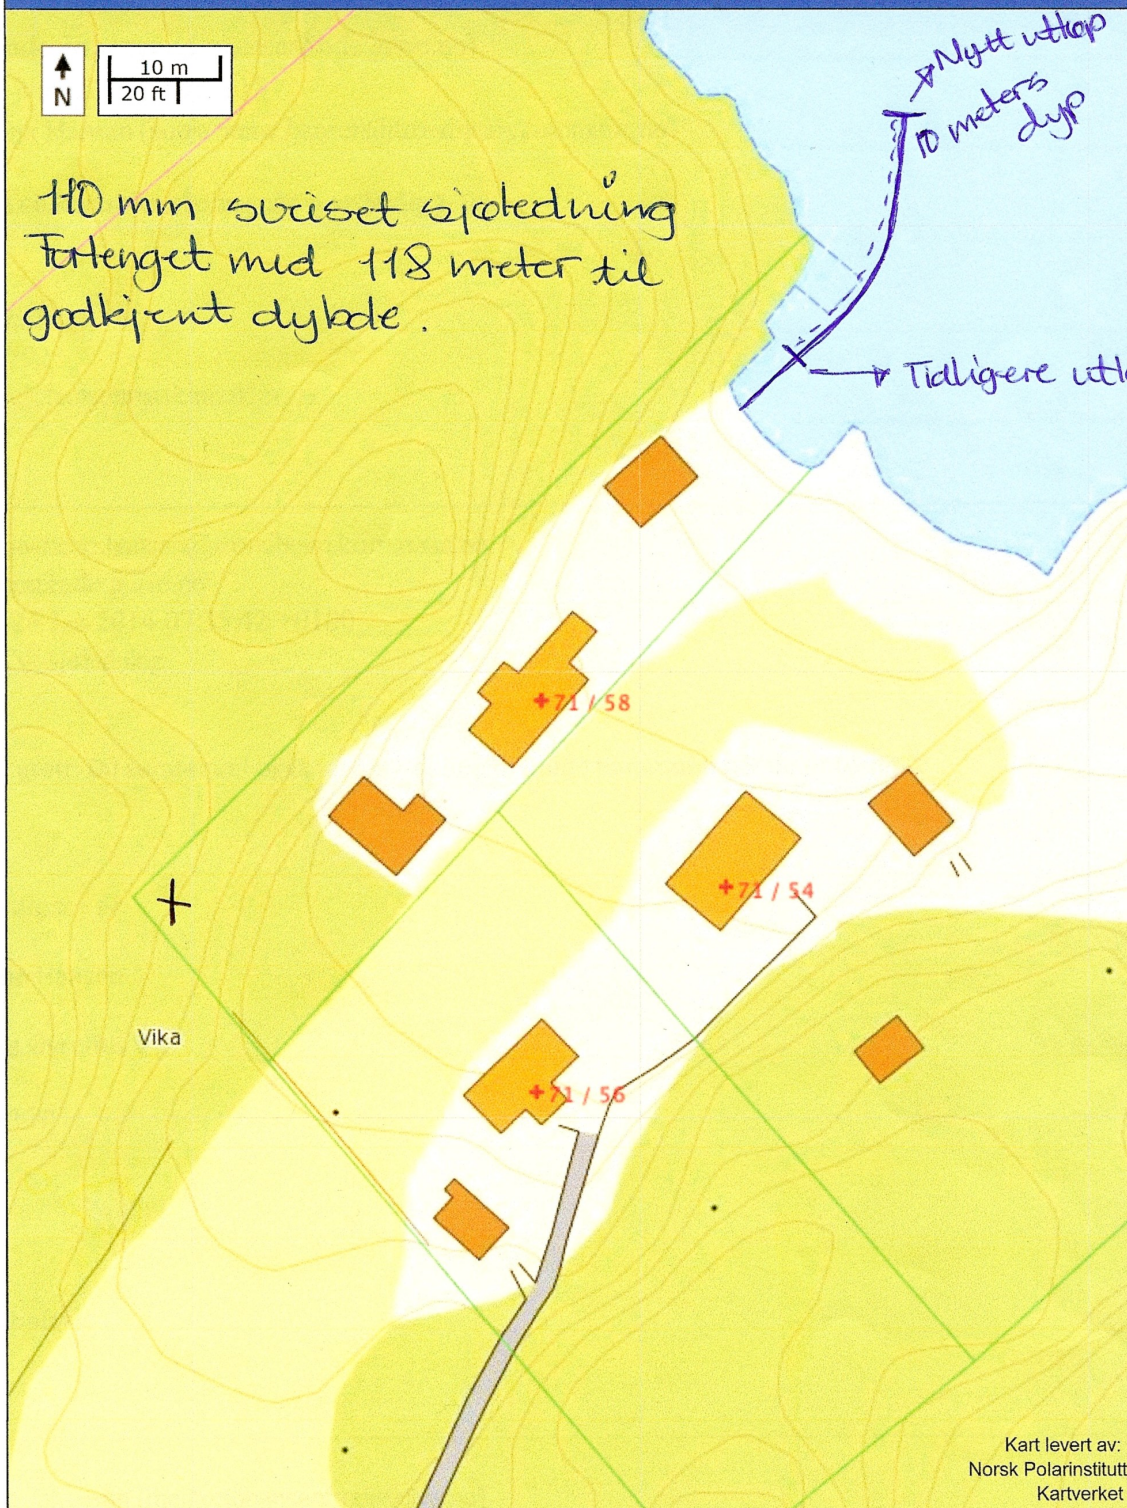 N
10 m
20 ft
Nytt utløp
10 meters
dyp
110 mm sveiset sjøledning
Forlenget med 118 meter til
godkjent dybde.
Tidligere utl
71 / 58
71 / 54
Vika
71 / 56
Kart levert av:
Norsk Polarinstitutt
Kartverket